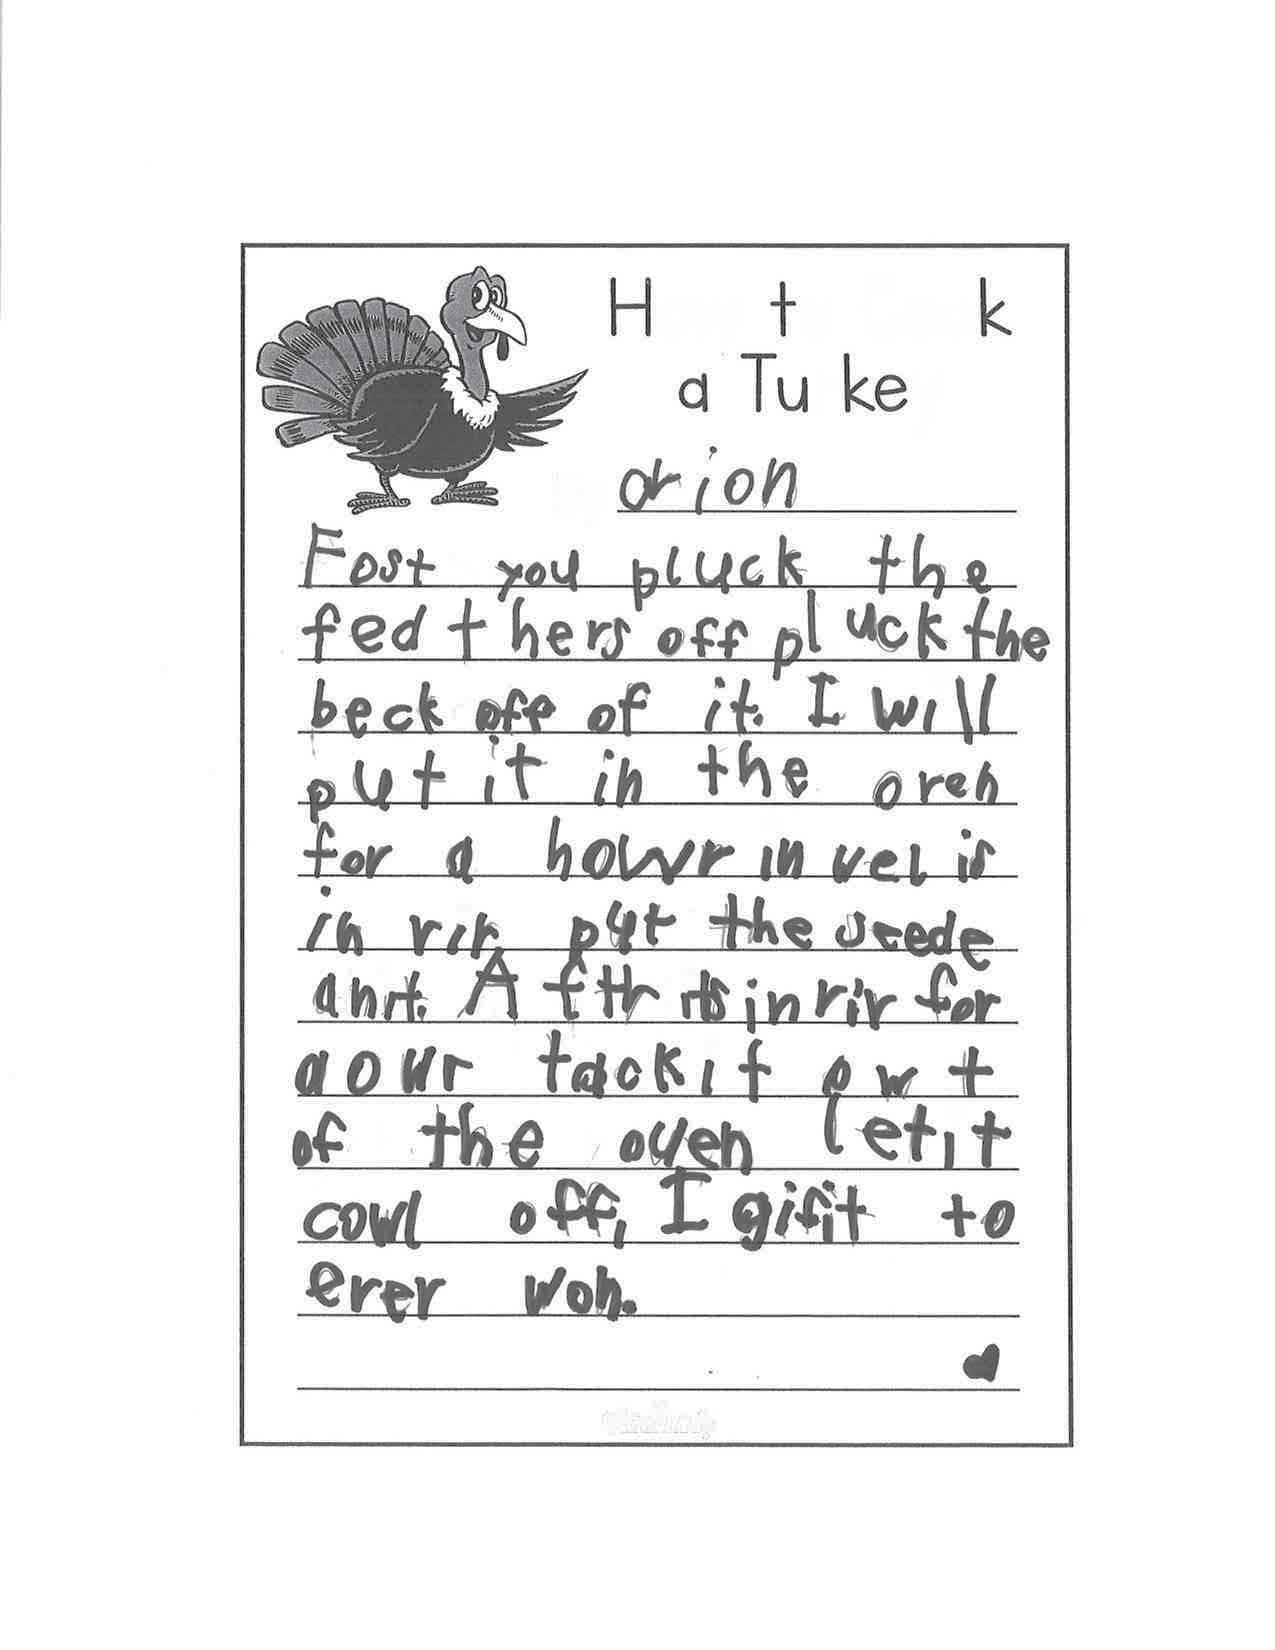 H t k
a Tu ke
orion
Fost you pluck the
fed thers off pluck the
beck off of it. I will
put it in the oren
for a howr in vel is
in rir put the seede
anit. A fthr its in rir for
a owr tack it owt
of the oven let it
cowl off, I gifit to
erer won.